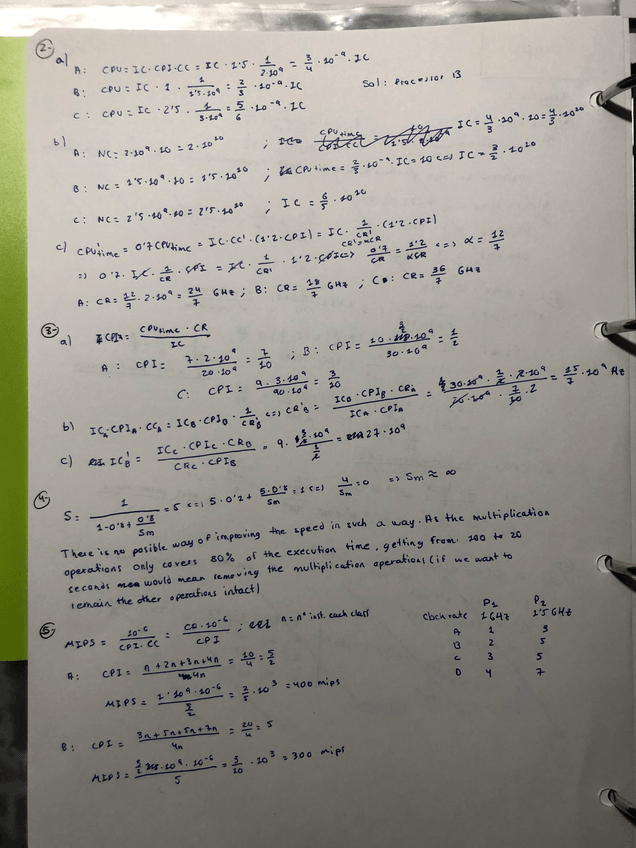 2-
a) A: CPU = IC · CPI · CC = IC · 1'5 · 1/(2·10⁹) = 3/4 · 10⁻⁹ · IC
B: CPU = IC · 1 · 1/(1'5·10⁹) = 2/3 · 10⁻⁹ · IC Sol: Processor B
C: CPU = IC · 2'5 · 1/(3·10⁹) = 5/6 · 10⁻⁹ · IC
b) A: NC = 2·10⁹ · 10 = 2·10¹⁰ ; IC = 4/3 · 10⁹ · 10 = 4/3 · 10¹⁰
B: NC = 1'5 · 10⁹ · 10 = 1'5 · 10¹⁰ ; CPUtime = 2/3 · 10⁻⁹ · IC = 10 <=> IC = 3/2 · 10¹⁰
C: NC = 2'5 · 10⁹ · 10 = 2'5 · 10¹⁰ ; IC = 6/5 · 10¹⁰
c) CPU'time = 0'7 CPUtime = IC · CC' · (1'2 · CPI) = IC · 1/CR' · (1'2 · CPI)
CR' = αCR
=> 0'7 · IC · 1/CR · CPI = IC · 1/CR' · 1'2 · CPI <=> 0'7/CR = 1'2/αCR <=> α = 12/7
A: CR = 12/7 · 2·10⁹ = 24/7 GHz ; B: CR = 18/7 GHz ; C: CR = 36/7 GHz
3-
a) CPI = CPUtime · CR / IC
A: CPI = 7·2·10⁹/(20·10⁹) = 7/10 ; B: CPI = 10 · 3/2 · 10⁹/(30·10⁹) = 1/2
C: CPI = 9·3·10⁹/(90·10⁹) = 3/10
b) ICA · CPIA · CCA = ICB · CPIB · 1/CR'B <=> CR'B = ICB · CPIB · CRA/(ICA · CPIA) = 30·10⁹ · 1/2 · 2·10⁹/(20·10⁹ · 7/10) = 15/7 · 10⁹ Hz
c) IC'B = ICC · CPIC · CRB/(CRC · CPIB) = 27 · 10⁹
4-
S = 1/(1-0'8 + 0'8/Sm) = 5 <=> 5 · 0'2 + 5·0'8/Sm = 1 <=> 4/Sm = 0 => Sm ≈ ∞
There is no posible way of improving the speed in such a way. As the multiplication
operations only covers 80% of the execution time, getting from 100 to 20
seconds would mean removing the multiplication operations (if we want to
remain the other operations intact)
5-
MIPS = 10⁻⁶/(CPI · CC) = CR · 10⁻⁶/CPI ; n = nº inst. each class
A: CPI = (n + 2n + 3n + 4n)/4n = 10/4 = 5/2
MIPS = 1·10⁹ · 10⁻⁶/(5/2) = 2/5 · 10³ = 400 mips
B: CPI = (3n + 5n + 5n + 7n)/4n = 20/4 = 5
MIPS = 3/2 · 10⁹ · 10⁻⁶/5 = 3/10 · 10³ = 300 mips
P₁ P₂
Clock rate 1 GHz 1'5 GHz
A 1 3
B 2 5
C 3 5
D 4 7